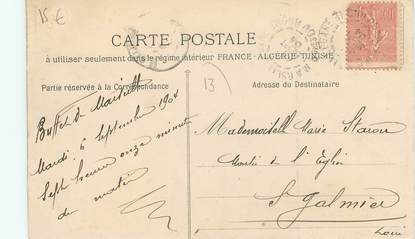 15 €
CARTE POSTALE
à utiliser seulement dans le régime intérieur FRANCE-ALGÉRIE-TUNISIE
Partie réservée à la Correspondance
Adresse du Destinataire
13
Buffet de Marseille
Mardi 6 Septembre 1904
Sept heures onze minutes
du matin
Mademoiselle Marie
de l'Eglise
St Galmier
Loire